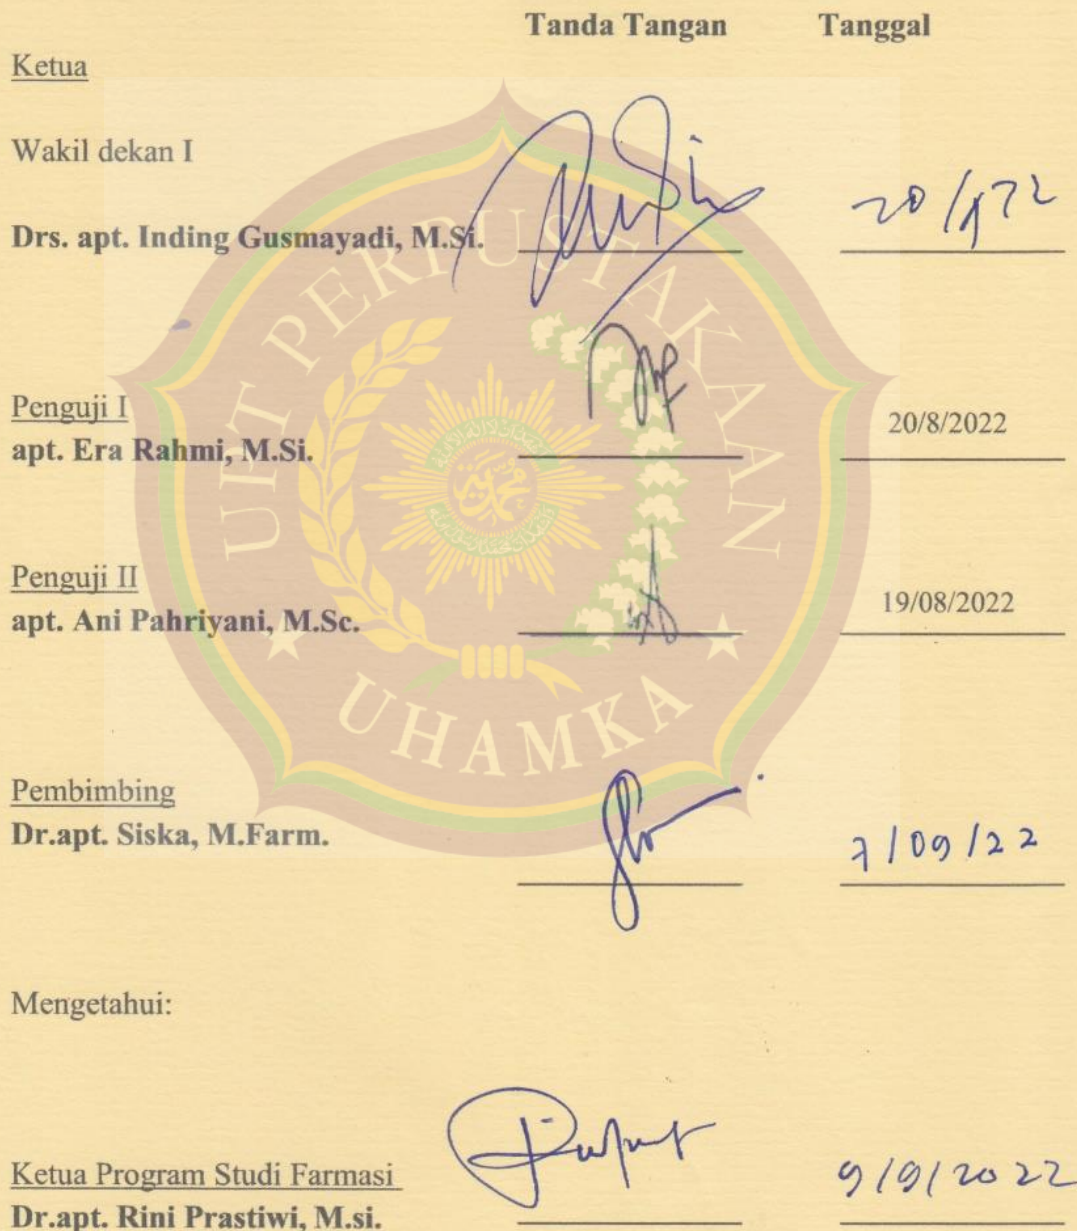 Tanda Tangan Tanggal
Ketua
Wakil dekan I
Drs. apt. Inding Gusmayadi, M.Si.
Penguji I
20/8/2022
apt. Era Rahmi, M.Si.
Penguji II
19/08/2022
apt. Ani Pahriyani, M.Sc.
Pembimbing
Dr.apt. Siska, M.Farm.
7/09/22
Mengetahui:
Ketua Program Studi Farmasi
9/9/2022
Dr.apt. Rini Prastiwi, M.si.
UPT PERPUSTAKAAN
UHAMKA